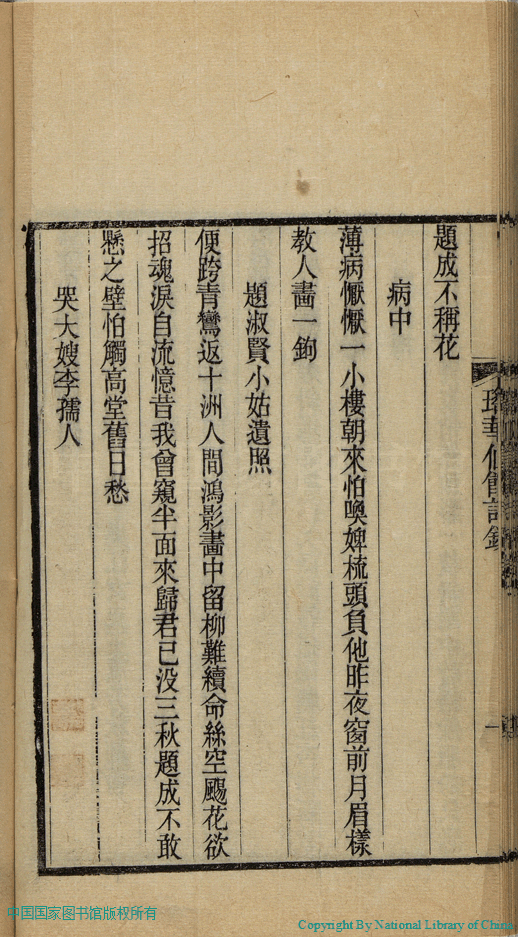 題成不稱花
病中
薄病懨懨一小樓朝來怕喚婢梳頭負他昨夜窗前月眉樣
教人畫一鉤
題淑賢小姑遺照
便跨青鸞返十洲人間鴻影畫中留柳難續命絲空颺花欲
招魂淚自流憶昔我曾窺半面來歸君已没三秋題成不敢
懸之壁怕觸高堂舊日愁
哭大嫂李孺人
中国国家图书馆版权所有
Copyright By National Library of China